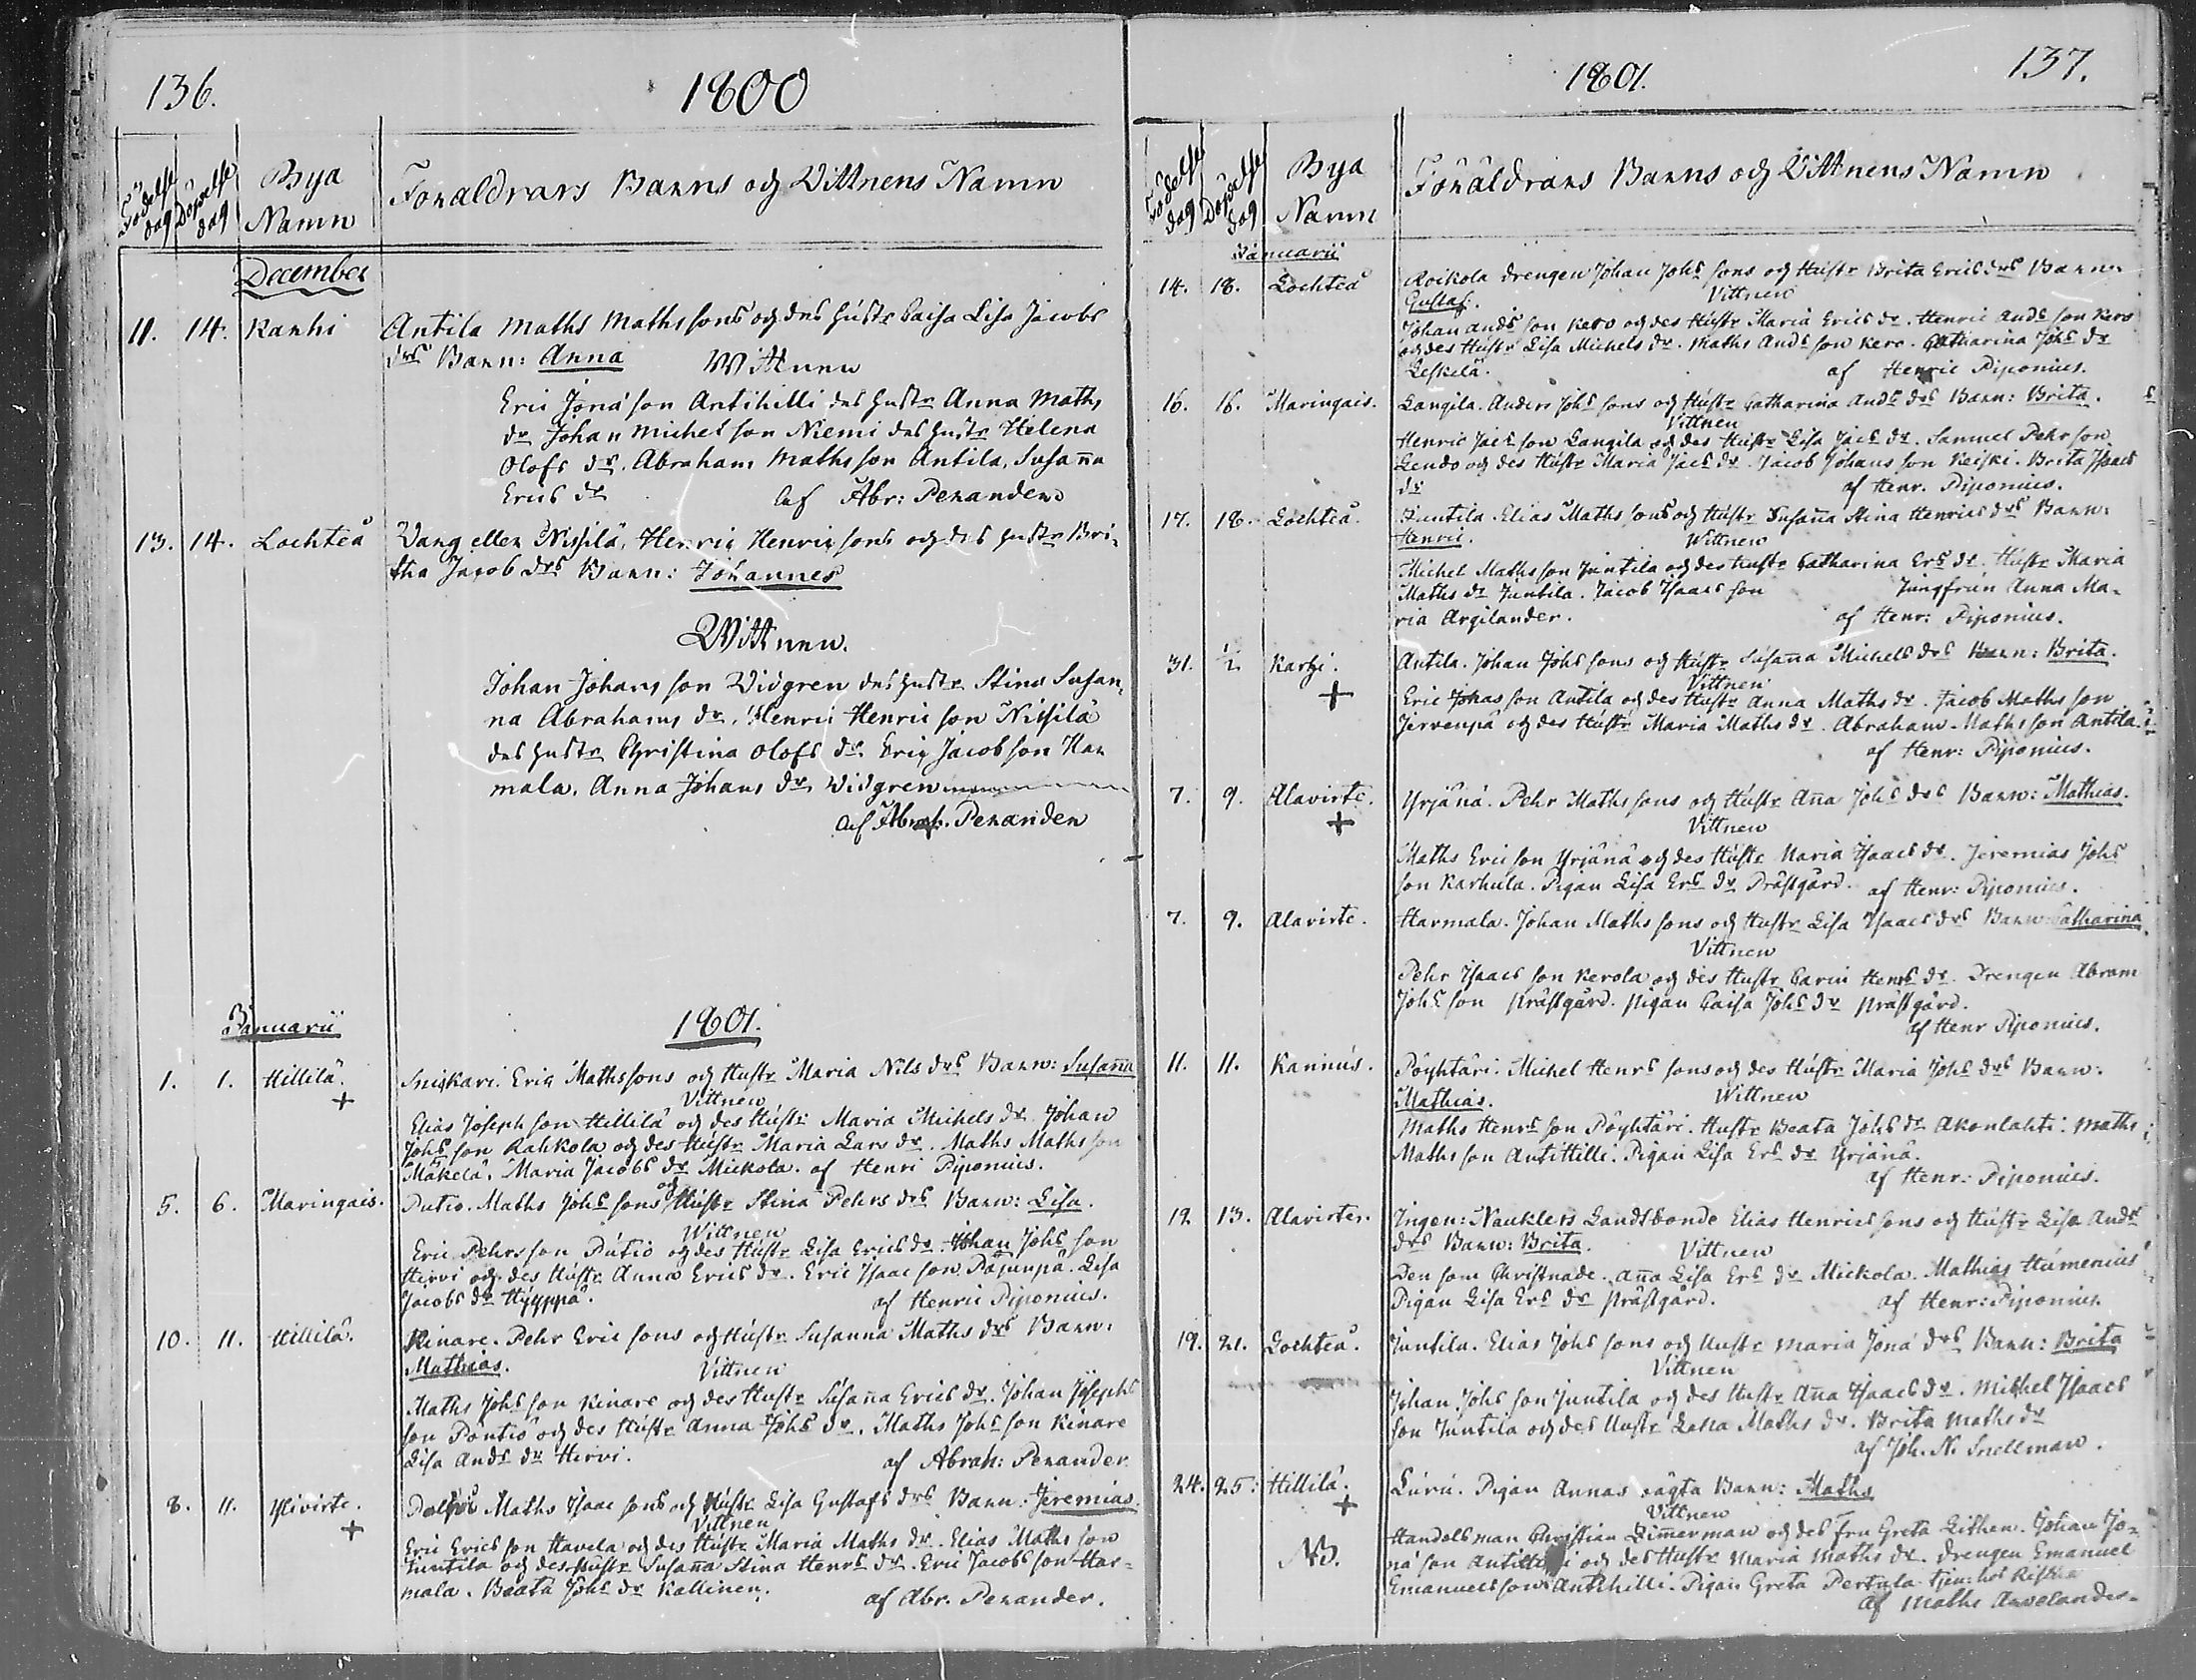 136.
1800
Födelse dag
Döpelse dag
Bya Namn
Foraldrars Barns och Vittnens Namn
December
11. 14. Karhi Antila Maths Mathssons och des hustr Caisa Lisa Jacobs
drs Barn: Anna
Wittnen
Eric Jonä son Antihilli des hustr Anna Maths
dr Johan Michel son Niemi des hustr Helena
Olofs dr. Abraham Mathsson Antila, Susaña
Erics dr af Abr: Peranden
13. 14. Lochteå Wang eller Nissilä, Henric Henricsons och des hustr Bri-
tha Jacob drs Barn: Johannes
Wittnen.
Johan Johans son Widgren des hustr Stina Susan,
na Abrahams dr. Henric Henric son Nissilä
des hustr Christina Olofs dr. Eric Jacobson Har
mala, Anna Johans dr, Widgren
af Abrah. Peranden
Januarii
1801.
1. 1. Hillilä. + Sniskari. Eric Mathssons och Hustr Maria Nils drs Barn: Susaña
Vittnen
Elias Josephson Hillilä och des Hustr Maria Michels dr. Johan
Johs son Rahkola och des Hustr Maria Lars dr. Maths Maths son
Mäkelä, Maria Jacobs dr Mickola. af Henri Piponius.
5. 6. Maringais. Putio. Maths Johs sons och Hustr Stina Pehrs drs Barn: Lisa.
Wittnen
Eric Pehrsson Putio och des Hustr Lisa Erics dr. Johan Johs son
Hirvi och des Hustr Anna Erics dr. Eric Isaac son Pajunpä. Lisa
Jacobs dr Hyyppä. af Henric Piponius.
10. 11. Hillilä. Kinare. Pehr Eric sons och Hustr Susanna Maths drs Barn:
Mathias. Vittnen
Maths Johs son Kinare och des Hustr Susaña Erics dr. Johan Josephs
son Pontio och des Hustr Anna Johs dr. Maths Johs son Kinare
Lisa Ands dr Hirvi. af Abrah: Perander
8. 11. Ylivirte. + Maths Isaac sons och Hustr Lisa Gustafs drs Barn: Jeremias.
Vittnen
Eric Ericsson Havela och des Hustr Maria Maths dr. Elias Maths son
Juntila och des Hustr Susaña Stina Henrs dr. Eric Jacobs son Har-
mala. Beata Johs dr Kallinen. af Abr. Perander.
1801.
137.
Födelse dag
Döpelse dag
Bya Namn
Föräldrars Barns och Vittnens Namn
Januarii
14. 18. Lochteå Roikola drengen Johan Johs sons och Hustr Brita Ericsdrs Barn:
Gustaf. Vittnen
Johan Ands son Kero och des Hustr Maria Erics dr. Henric Ands son Kero
och des Hustr Lisa Michels dr. Maths Ands son Kero. Catharina Johs dr
Leskelä. af Henric Piponius.
16. 18. Maringais. Langila. Anders Johs sons och Hustr Catharina Ands drs Barn: Brita.
Vittnen
Henric Jacs son Langila och des Hustr Lisa Jacs dr. Samuel Pehrson
Lendo och des Hustr Maria Jacs dr. Jacob Johans son Keiski. Brita Isaacs
dr af Henr. Piponius.
17. 18. Lochteå. Juntila. Elias Maths sons och Hustr Susaña Stina Henrics drs Barn:
Henric. Wittnen
Michel Mathsson Juntila och des Hustr Catharina Ers dr. Hustr Maria
Maths dr Juntila. Jacob Isaacs son Jungfrun Anna Ma-
ria Argilander. af Henr: Piponius.
31. 1/2. Karhi. + Antila. Johan Johs sons och Hustr Susaña Michels drs Barn: Brita.
Vittnen
Eric Johas son Antila och des Hustr Anna Maths dr. Jacob Maths son
Jervenpä och des Hustr Maria Maths dr. Abraham Maths son Antila.
af Henr: Piponius.
7. 9. Alavirte. + Yrjänä. Pehr Maths sons och Hustr Aña Johs drs Barn: Mathias.
Vittnen
Maths Ericson Yrjänä och des Hustr Maria Isaacs dr. Jeremias Johs
son Karhula. Pigan Lisa Ers dr Prästgård. af Henr: Piponius.
7. 9. Alavirte. Harmala. Johan Maths sons och Hustr Lisa Isaacs drs Barn: Catharina
Vittnen
Pehr Isaacs son Kerola och des Hustr Carin Henrs dr. Drengen Abram
Johs son Prästgård. Pigan Caisa Johs dr Prästgård.
af Henr Piponius.
11. 11. Kannus. Pöyhtäri. Michel Henrs sons och des Hustr Maria Johs drs Barn:
Mathias. Wittnen
Maths Henrs son Pöyhtäri. Hustr Beata Johs dr Akonlahti. Maths
Maths son Antihilli. Pigan Lisa Ers dr Yrjänä.
af Henr: Piponius.
12 13. Alavirte. Ingen: Nauklers Landsbonde Elias Henrics sons och Hustr Lisa Ands
drs Barn: Brita. Vittnen
Den som Christnade. Aña Lisa Ers dr Mickola. Mathias Humenius
Pigan Lisa Ers dr Prästgård. af Henr: Piponius.
19. 21. Lochteå. Juntila. Elias Johs sons och Hustr Maria Jonä drs Barn: Brita
Vittnen
Johan Johs son Juntila och des Hustr Aña Isaacs dr. Michel Isaacs
son Juntila och des Hustr Maths dr. Brita Maths dr
af Joh. N. Snellman.
24. 25. Hillilä. + Luru. Pigan Annas oägta Barn: Maths
Vittnen
NB. Handelsman Christian Zimmerman och des fru Greta Lithen. Johan Jo-
nä son och des Hustr Maria Maths dr. Drengen Emanuel
Emanuelsson Antihilli. Pigan Greta Pertula tjen: hos
af Maths